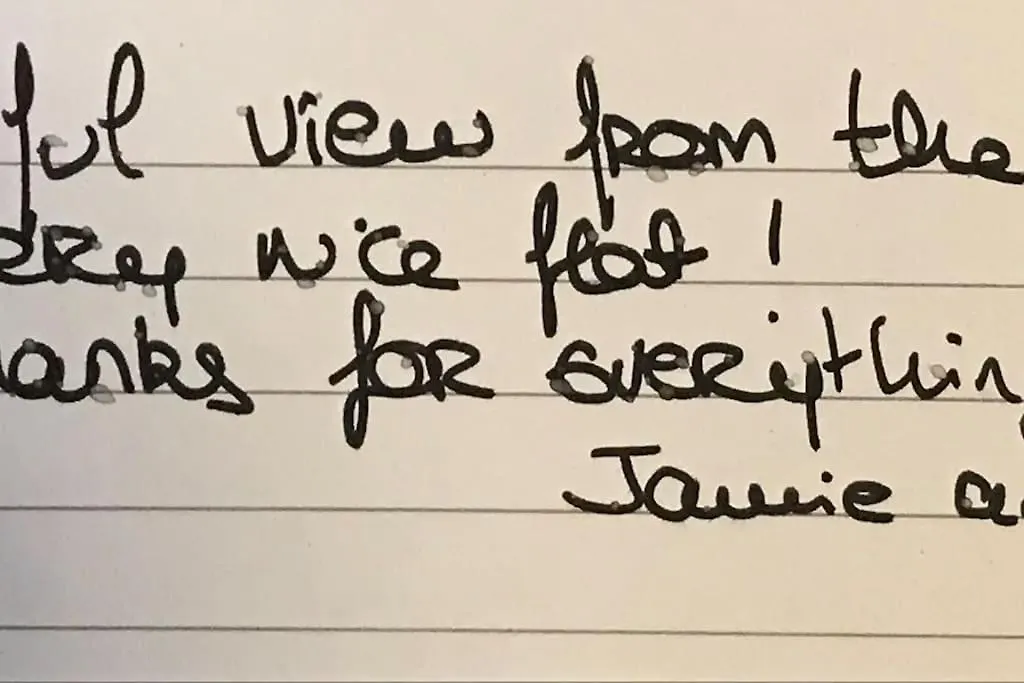 ful view from the
ery nice flat!
anks for everythin
Jamie a